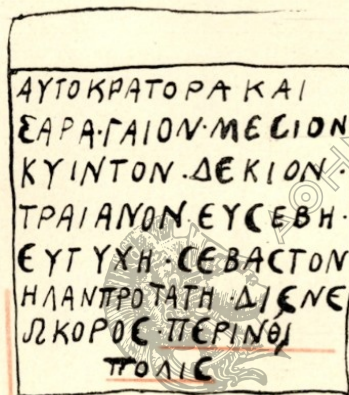 ΑΥΤΟΚΡΑΤΟΡΑ ΚΑΙ
ΣΑΡΑ·ΓΑΙΟΝ·ΜΕϹΙΟΝ
ΚΥΙΝΤΟΝ·ΔΕΚΙΟΝ·
ΤΡΑΙΑΝΟΝ·ΕΥΣΕΒΗ·
ΕΥΤΥΧΗ·ϹΕΒΑϹΤΟΝ
ΗΛΑΝΠΡΟΤΑΤΗ·ΔΙϹΝΕ
ΩΚΟΡΟϹ·ΠΕΡΙΝΘΙ
ΠΟΛΙϹ